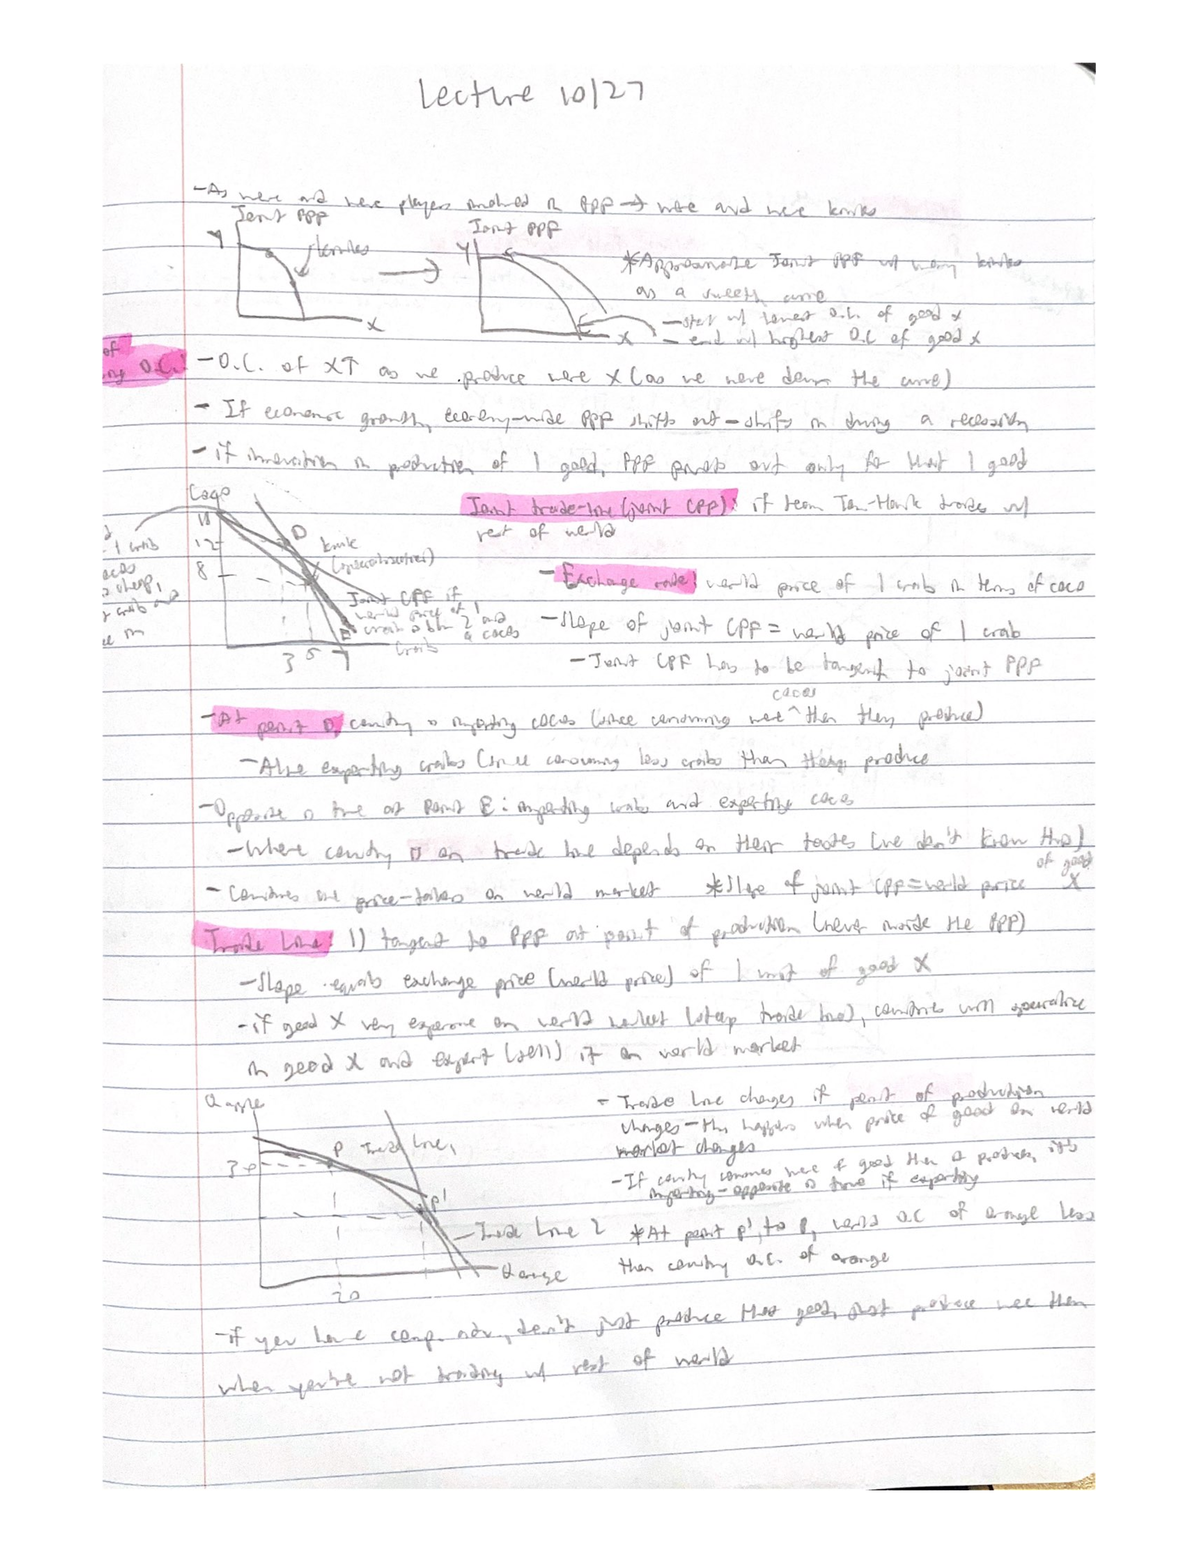 Lecture 10/27
- As more and more players involved in PPF → more and more kinks
Joint PPF
Joint PPF
Y
kinks
X
Y
X
* Approximate Joint PPF w/ many kinks
as a smooth curve
- start w/ lowest O.C. of good x
- end w/ highest O.C. of good x
of
ing O.C.:
- O.C. of X↑ as we produce more X (as we move down the curve)
- If economic growth, economy-wide PPF shifts out - shifts in during a recession
- if innovation in production of 1 good, PPF pivots out only for that 1 good
Joint trade-line (joint CPF): if team Tom-Hank trades w/
rest of world
Coco
12
8
D
kink
3 5 7
Crab
E
Joint CPF if
world price of 1
crab is btw 2 and
4 cocos
1 crab
cocos
cheap,
crab and
in
- Exchange rate: world price of 1 crab in terms of coco
- Slope of joint CPF = world price of 1 crab
- Joint CPF has to be tangent to joint PPF
- At point D, country is importing cocos (since consuming more ^cocos than they produce)
- Also exporting crabs (since consuming less crabs than they produce
- Opposite is true at Point E: importing crabs and exporting cocos
- Where country is on trade line depends on their tastes (we don't know this)
- Countries are price-takers on world market * Slope of joint CPF = world price of good X
Trade Line: 1) tangent to PPF at point of production (never inside the PPF)
- Slope equals exchange price (world price) of 1 unit of good X
- if good X very expensive on world market (steep trade line), countries will specialize
in good X and export (sell) it on world market
Q apple
30
P
Trade Line 1
P'
Trade Line 2
20
- Trade Line changes if point of production
changes - this happens when price of good on world
market changes
- If country consumes more of good than it produces, it's
importing - opposite is true if exporting
* At point P', to P, world O.C of orange less
than country O.C. of orange
- if you have comp. adv., don't just produce that good, just produce more than
when you're not trading w/ rest of world